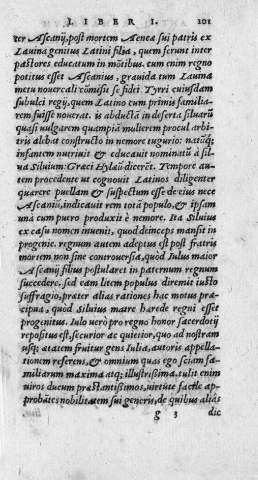 LIBER I. 101
ter Ascanij, post mortem Aeneæ sui patris ex
Lauina genitus Latini filia, quem ferunt inter
pastores educatum in mōtibus. cum enim regno
potitus esset Ascanius, grauida tum Lauina
metu nouercali cōmisit se fidei Tyrri cuiusdam
subulci regij, quem Latino cum primis familia-
rem fuisse nouerat. is abductā in deserta siluarū
quasi uulgarem quampiā mulierem procul arbi-
tris alebat constructo in nemore tugurio: natūq;
infantem nutriuit & educauit nominatū à sil
ua Siluium: Græci Hylaiū dicerēt. Tempore au-
tem procedente ut cognouit Latinos diligenter
quærere puellam & suspectum esse de eius nece
Ascaniū, indicauit rem totā populo, & ipsam
unà cum puero produxit è nemore. Ita Siluius
ex casu nomen inuenit, quod deinceps mansit in
progenie. regnum autem adeptus est post fratris
mortem non sine controuersia, quòd Iulus maior
Ascanij filius postularet in paternum regnum
succedere. sed eam litem populus diremit iusto
suffragio, præter alias rationes hac motus præ-
cipua, quòd Siluius matre hærede regni esset
progenitus. Iulo uerò pro regno honor sacerdotij
repositus est, securior ac quietior, quo ad nostram
usq; ætatem fruitur gens Iulia, autoris appella-
tionem referens, & omnium quas ego sciam fa-
miliarum maxima atq; illustrissima. tulit enim
uiros ducum præstantissimos, uirtute facile ap-
probātes nobilitatem sui generis, de quibus aliàs
g 3 dic